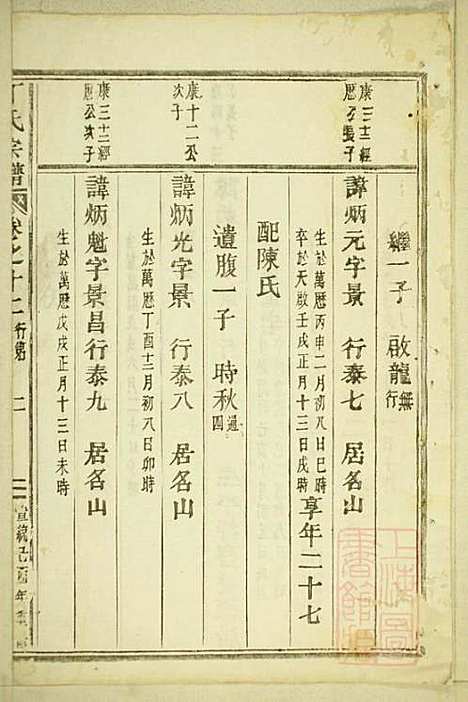 繼一子 啟龍無行
康三十三經
歷公長子
諱炳元字景 行泰七 居名山
生於萬歷丙申二月初八日巳時
卒於天啟壬戌正月十三日戌時
享年二十七
配陳氏
遺腹一子 時秋通四
康十二公
次子
諱炳光字景 行泰八 居名山
生於萬歷丁酉十二月初八日卯時
康三十三經
歷公次子
諱炳魁字景昌行泰九 居名山
生於萬歷戊戌正月十三日未時
丁氏宗譜 卷之十二 行第 二 宣統己酉年
上海圖書館藏